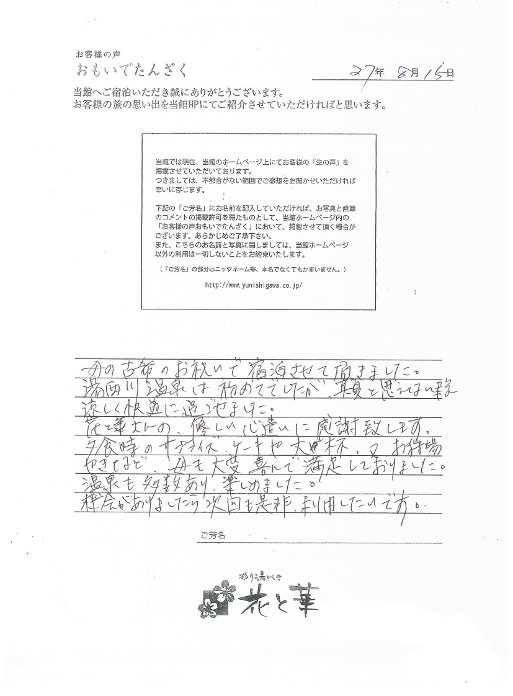 お客様の声
おもいでたんざく
27年 8月 15日
当館へご宿泊いただき誠にありがとうございます。
お客様の旅の思い出を当館HPにてご紹介させていただければと思います。
当館では現在、当館のホームページ上にてお客様の「生の声」を
掲載させていただいております。
つきましては、不都合がない範囲でご感想をお聞かせいただければ
幸いに存じます。
下記の「ご芳名」にお名前を記入していただければ、お写真と直筆
のコメントの掲載許可を得たものとして、当館ホームページ内の
「お客様の声おもいでたんざく」において、掲載させて頂く場合が
ございます。あらかじめご了承下さい。
また、こちらのお名前と写真に関しましては、当館ホームページ
以外の利用は一切しないことをお約束いたします。
(「ご芳名」の部分はニックネーム等、本名でなくてもかまいません。)
http://www.yunishigawa.co.jp/
母の古希のお祝いで宿泊させて頂きました。
湯西川温泉は初めてでしたが、真夏と思えない程
涼しく快適に過ごせました。
花と華さんの、優しい心遣いに感謝致します。
夕食時のサプライズ、ケーキや大
杯、又お狩場
やきなど、母も大変喜んで満足しておりました。
温泉も多数あり、楽しめました。
機会がありましたら次回も是非、利用したいです。
ご芳名
彩り湯かしき
花と華